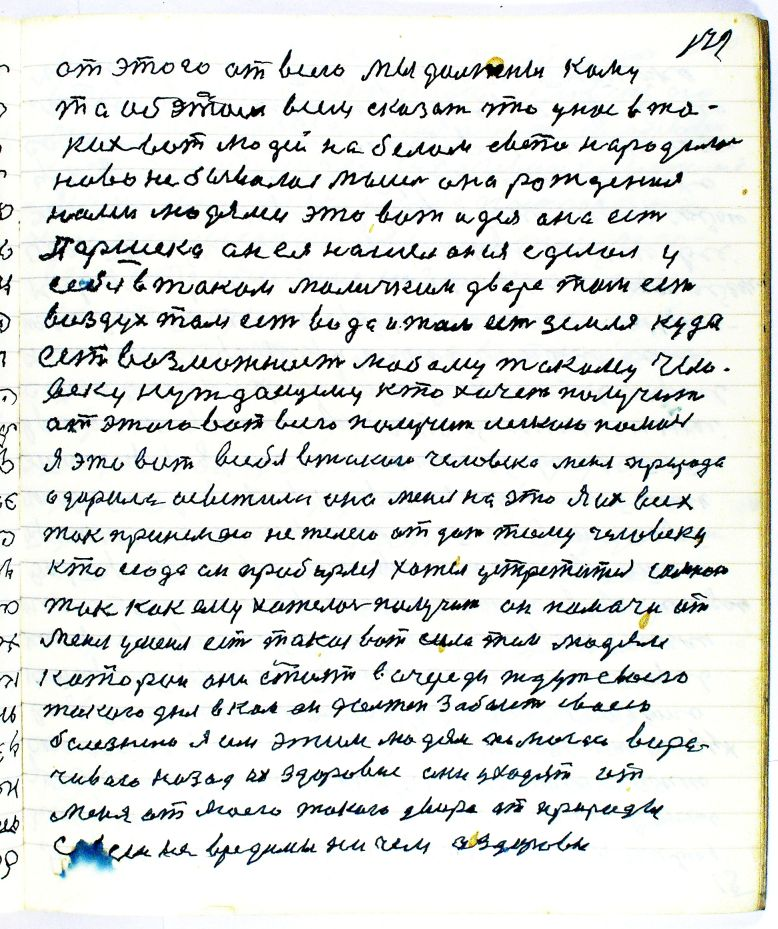 179
от этого от всего мы должны кому
та об этом всем сказат что у нас в та-
ких вот людей на белом свете народилас
ново не бывалая мысл она рождения
нами людями это вот идея она ест
Паршека он ея нашел он ея сделал у
себя в таком маличким дваре там ест
воздух там ест вода и там ест земля куда
ест возможност любому такому чело-
веку нуждающему кто хочет получит
от этого вот всего получит легкою помоч
Я это вот всебя втакого человека меня природа
одорила осветила она меня на это Я их всех
так принемаю не жалею от дат тому человеку
кто сюда он пробырался хотел устретится сомною
так как ему хотелос получит он помачи от
меня у меня ест такая вот сила тем людям
которои они стоят в очереди ждут своего
такого дня в ком он должен Заболет своею
болезнею Я им этим людям помогаю вора-
чиваю назад их здоровие они уходят от
меня от моего такого двора от природы
совсем не вредимы ни чем а здоровы